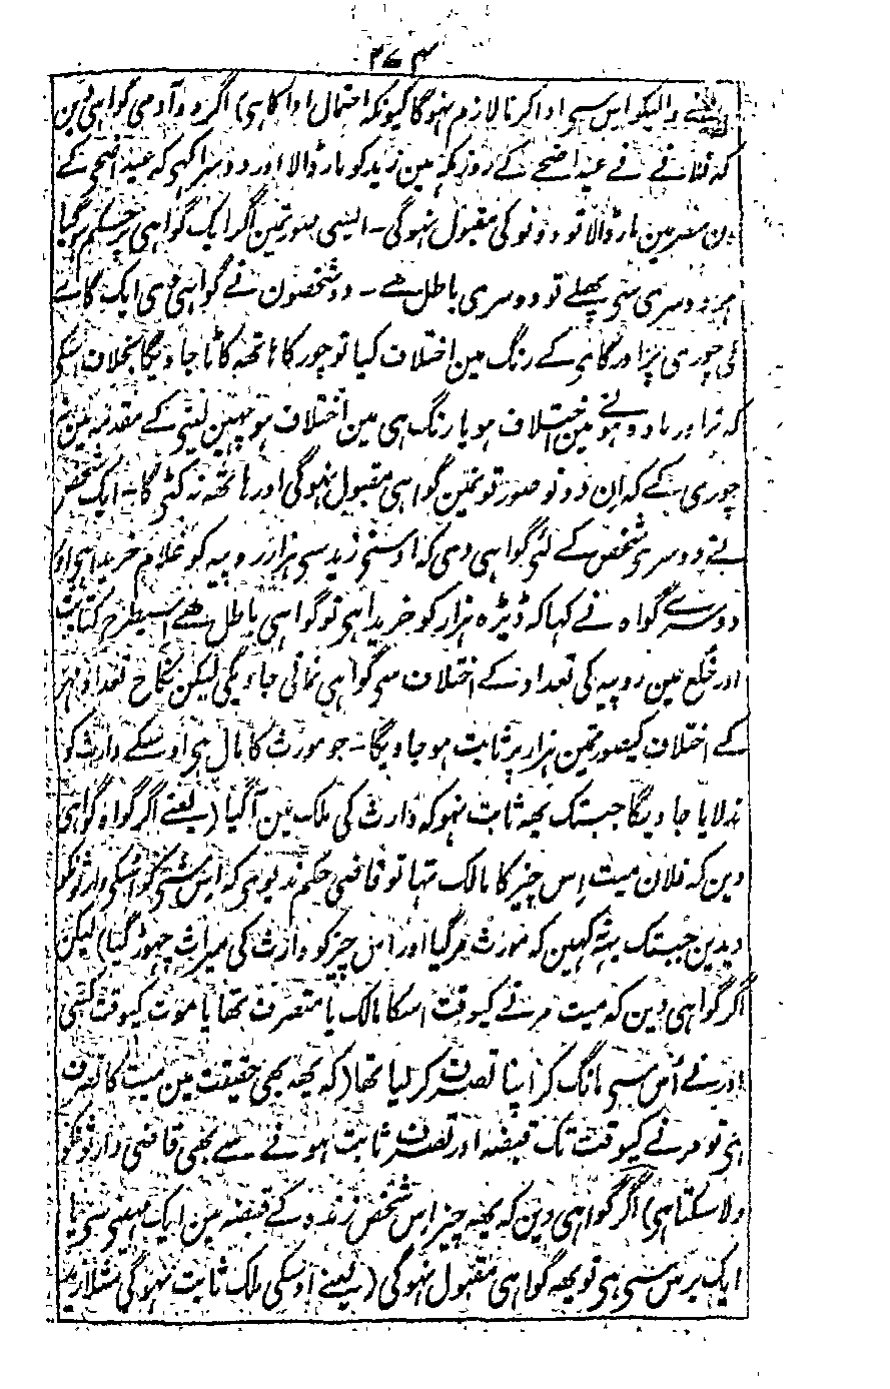 ۲۷۴
والیکو اس سی ادا کرنا لازم نہوگا کیونکہ احتمال ادا کا ہی) اگر دو آدمی گواہی دین
کہ فلانے نے عید اضحے کے روز مکہ مین زید کو مار ڈالا اور دوسرا کہی کہ عید اضحی کے
دن مصر مین مار ڈالا تو دونو کی مقبول نہوگی۔ ایسی صورتمین اگر ایک گواہی پر حکم ہو گیا
ہو دوسری سی پہلے تو دوسری باطل ہے۔ دو شخصون نے گواہی دی ایک گائے
کی چوری پر اور گاہی کے رنگ مین اختلاف کیا تو چور کا ہاتھہ کاٹا جاویگا بخلاف اسکی
کہ نر اور مادہ ہونے مین اختلاف ہو یا رنگ ہی مین اختلاف ہو چہین لینی کے مقدمہ مین نہ
چوری کے کہ ان دونو صورتونمین گواہی مقبول نہوگی اور ہاتھہ نہ کٹی گا۔ ایک شخص
نے دوسری شخص کے لئی گواہی دی کہ اوسنی زید سی ہزار روپیہ کو غلام خریدا ہی اور
دوسرے گواہ نے کہا کہ ڈیڑہ ہزار کو خریدا ہی تو گواہی باطل ہے اسیطرح کتابت
اور خلع مین روپیہ کی تعداد کے اختلاف سی گواہی نمانی جاویگی لیکن نکاح تعداد مہر
کے اختلاف کیصورتمین ہزار پر ثابت ہو جاویگا۔ جو مورث کا مال ہی اوسکے وارث کو
ندلایا جاویگا جبتک یہہ ثابت نہو کہ وارث کی ملک مین آگیا (یعنے اگر گواہ گواہی
دین کہ فلان میت اِس چیز کا مالک تہا تو قاضی حکم ندیوی کہ اس شی کو اسکی وارثونکو
دیدین جبتک یہہ نہ کہین کہ مورث مر گیا اور اس چیز کو وارث کی میراث چہوڑ گیا) لیکن
اگر گواہی دین کہ میت مرنے کیوقت اسکا مالک یا متصرف تھا یا موت کیوقت کسی
اور نے اُس سی مانگ کر اپنا تصرف کر لیا تھا (کہ یہہ بھی حقیقت مین میت کا تصرف
ہی تو مرنے کیوقت تک قبضہ اور تصرف ثابت ہونے سے بھی قاضی وارثونکو
دلا سکتا ہی) اگر گواہی دین کہ یہہ چیز اِس شخص زندہ کے قبضہ مین ایک مہینی سی یا
ایک برس سی ہی تو یہہ گواہی مقبول نہوگی (یعنے اوسکی ملک ثابت نہوگی مثلا زید